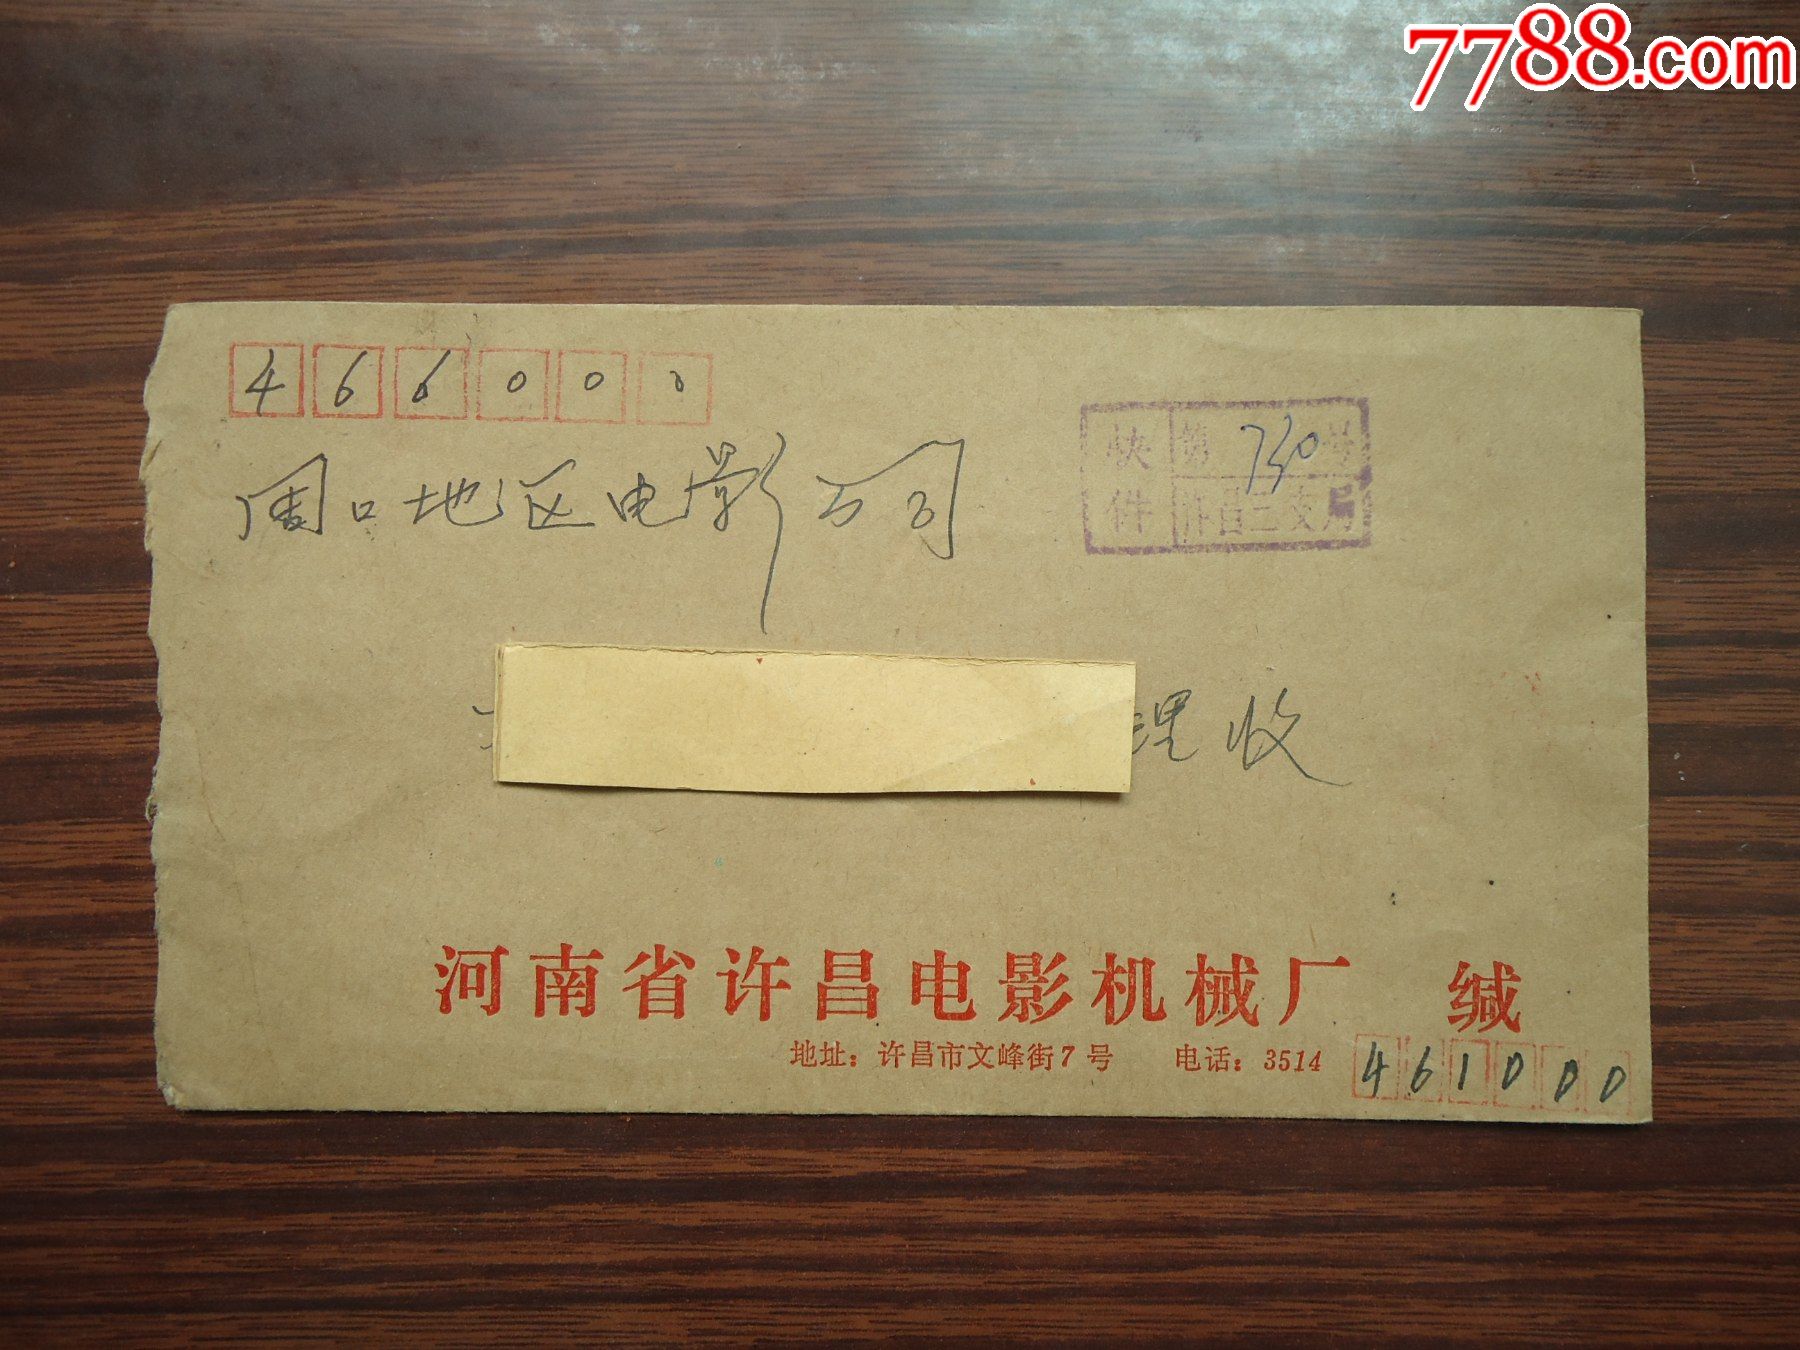 7788.com
466000
周口地区电影公司
快件 第730号
许昌三支局
理收
河南省许昌电影机械厂 缄
地址：许昌市文峰街7号 电话：3514
461000